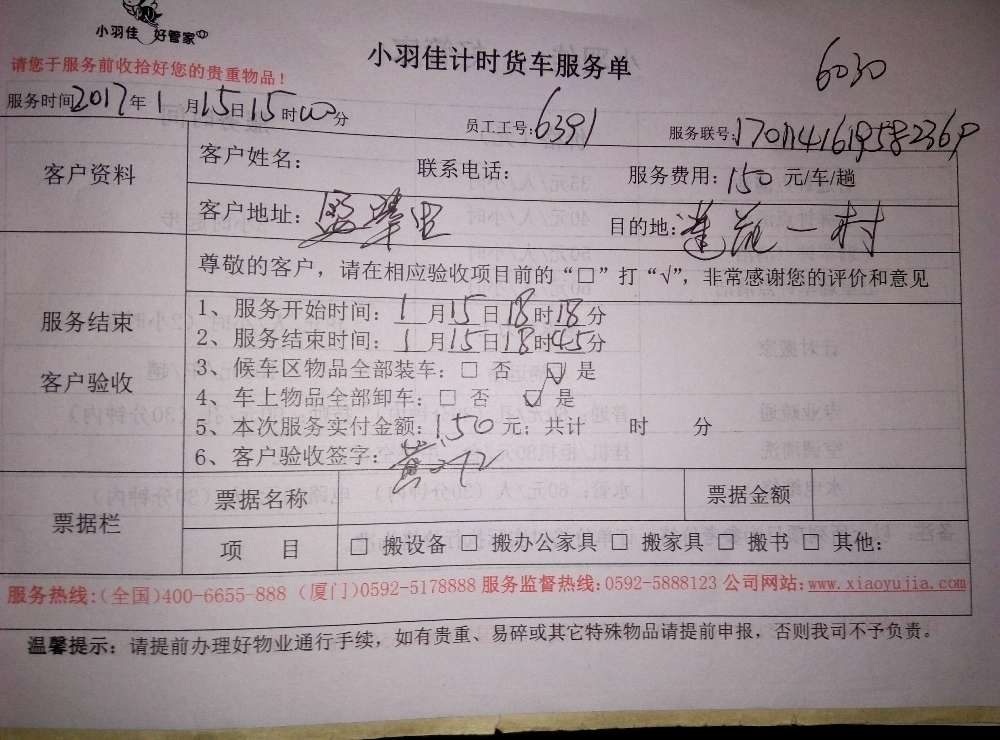 小羽佳 好管家
小羽佳计时货车服务单
6030
请您于服务前收拾好您的贵重物品！
服务时间2017年1月15日15时00分
员工工号:6391
服务联号:
客户资料
客户姓名: 联系电话: 服务费用:150元/车/趟
客户地址: 盈翠里 目的地:莲花一村
尊敬的客户，请在相应验收项目前的“□”打“√”，非常感谢您的评价和意见
服务结束
客户验收
1、服务开始时间:1月15日18时18分
2、服务结束时间:1月15日18时45分
3、候车区物品全部装车:□ 否 ☑ 是
4、车上物品全部卸车:□ 否 ☑ 是
5、本次服务实付金额:150元; 共计 时 分
6、客户验收签字:
票据栏
票据名称 票据金额
项 目 □ 搬设备 □ 搬办公家具 □ 搬家具 □ 搬书 □ 其他:
服务热线:(全国)400-6655-888 (厦门)0592-5178888 服务监督热线:0592-5888123 公司网站:www.xiaoyujia.com
温馨提示: 请提前办理好物业通行手续，如有贵重、易碎或其它特殊物品请提前申报，否则我司不予负责。